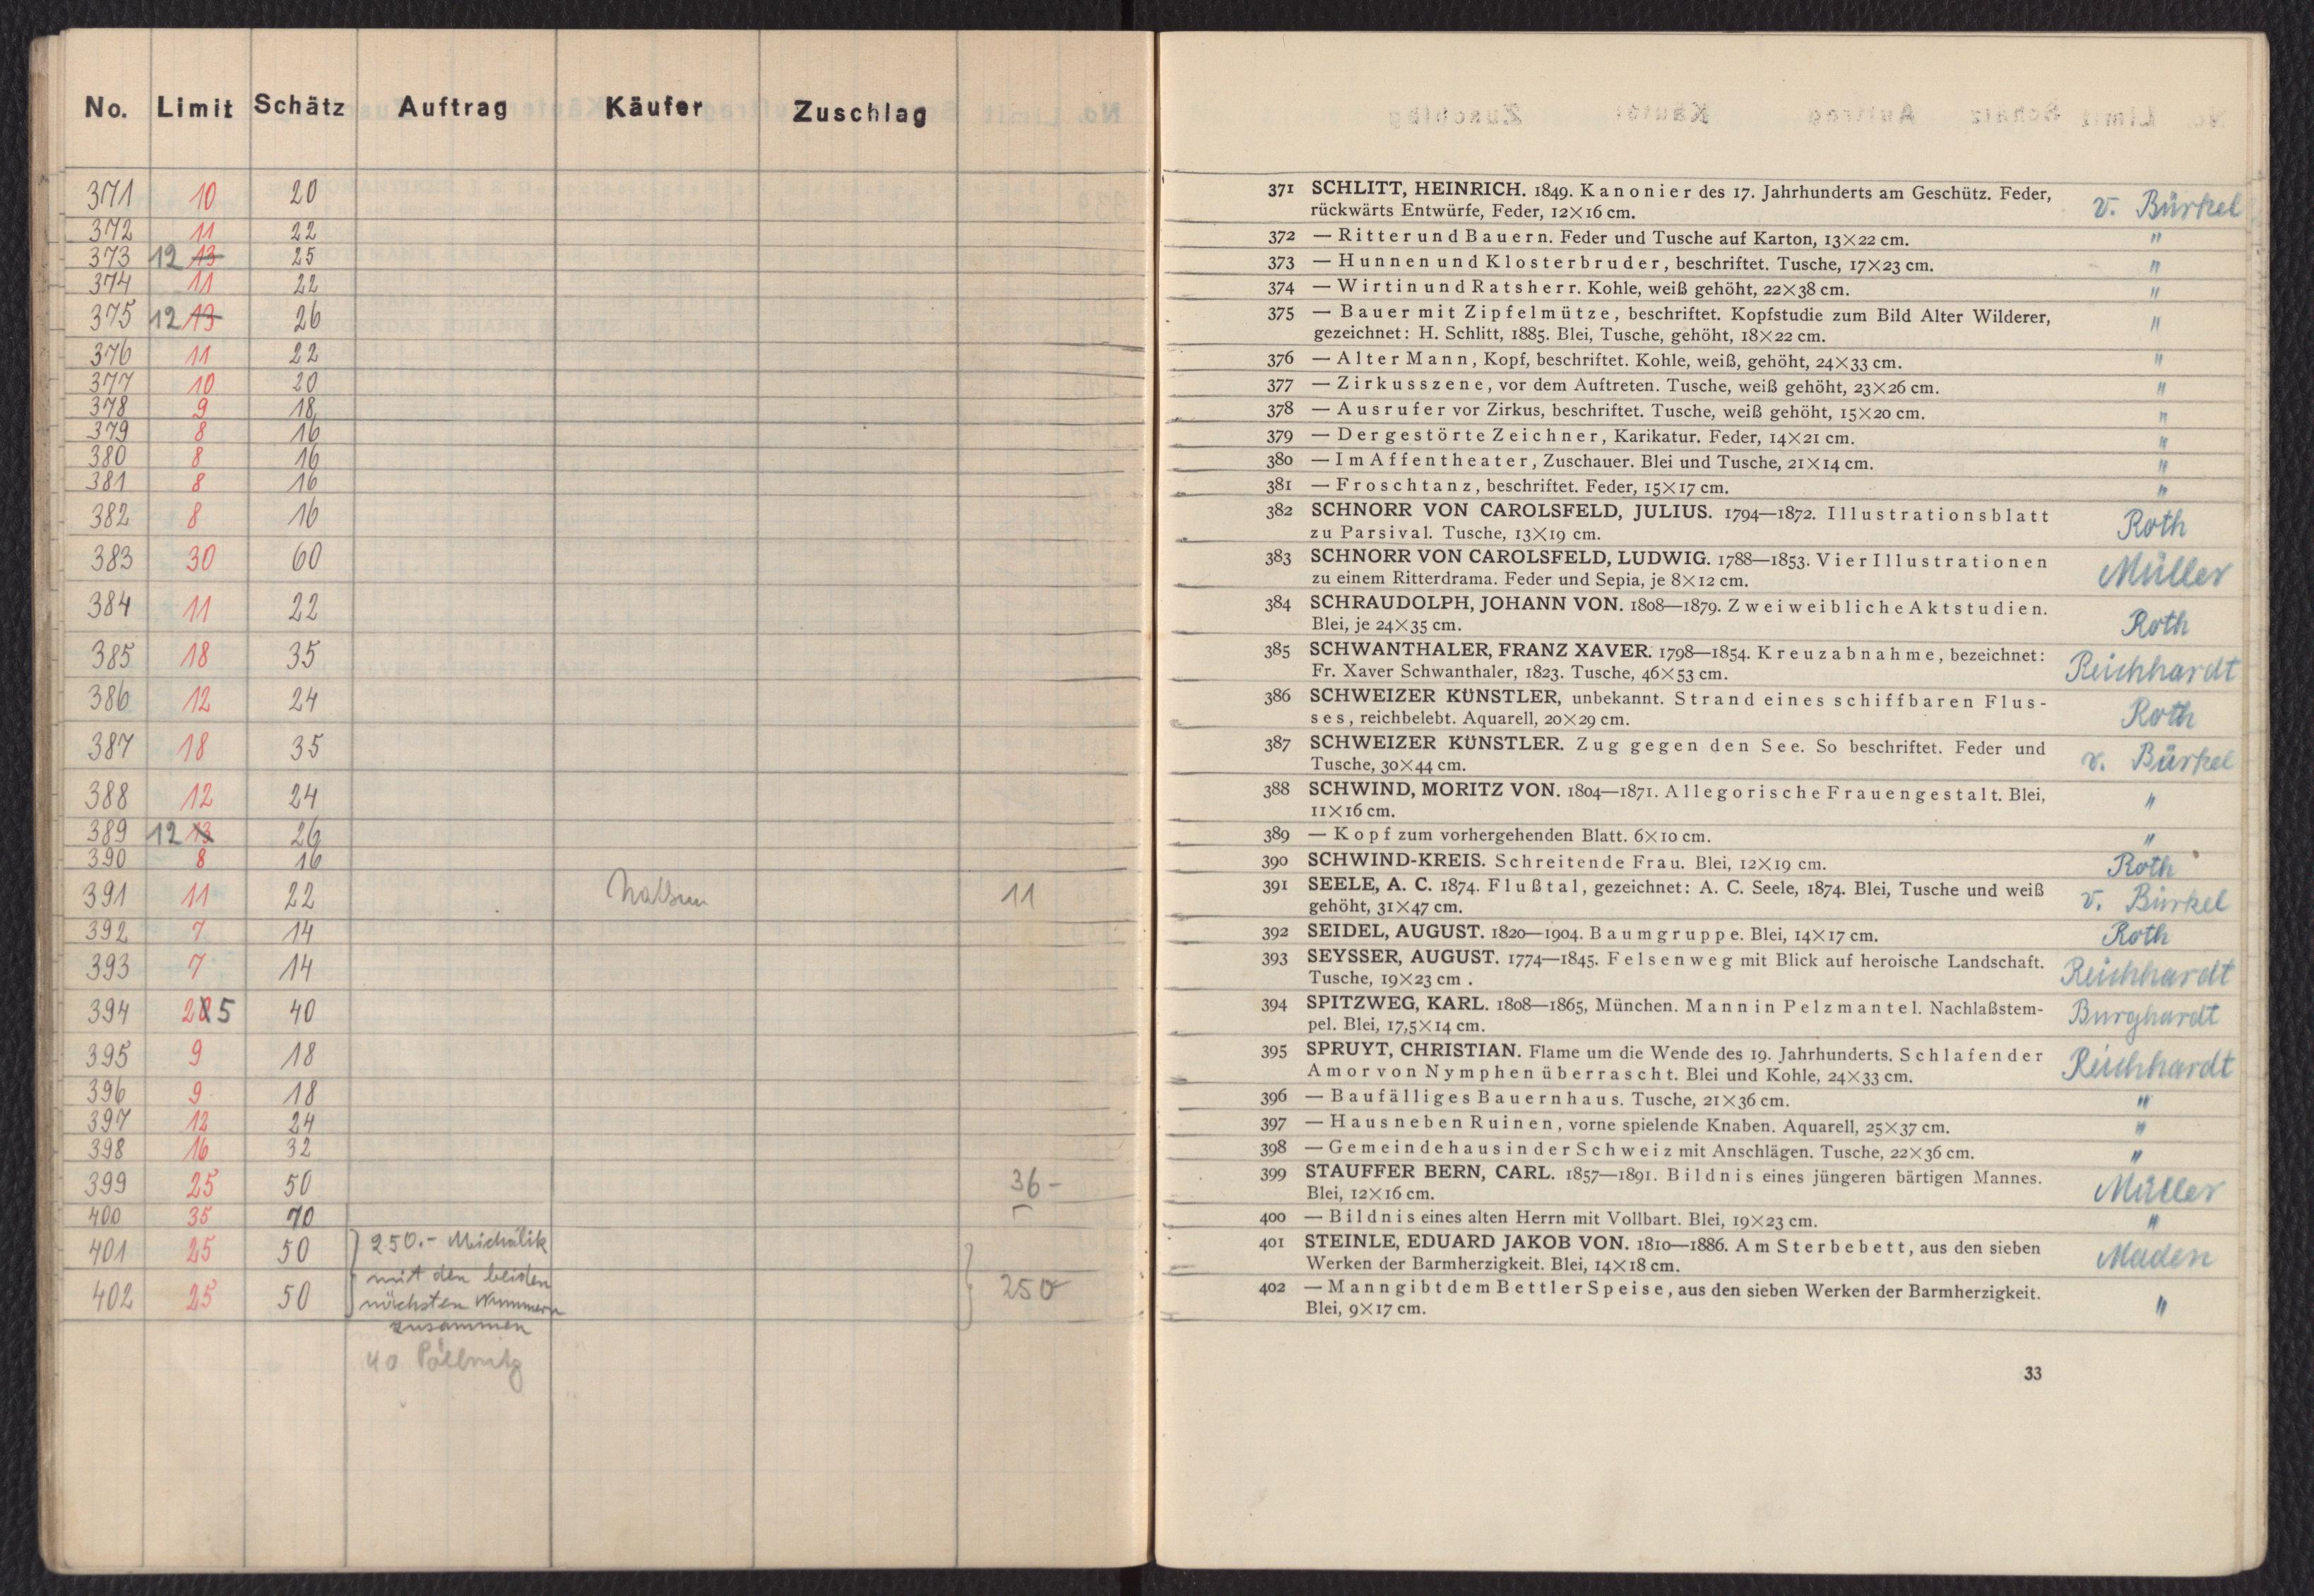 No. Limit Schätz Auftrag Käufer Zuschlag
371 10 20
372 11 22
373 12 13 25
374 11 22
375 12 13 26
376 11 22
377 10 20
378 9 18
379 8 16
380 8 16
381 8 16
382 8 16
383 30 60
384 11 22
385 18 35
386 12 24
387 18 35
388 12 24
389 12 13 26
390 8 16
391 11 22 11
392 7 14
393 7 14
394 205 40
395 9 18
396 9 18
397 12 24
398 16 32
399 25 50 36-
400 35 70
401 25 50 250.- Michalik
402 25 50 mit den beiden 250
nächsten Nummern
zusammen
40 Pöllnitz
371 SCHLITT, HEINRICH. 1849. Kanonier des 17. Jahrhunderts am Geschütz. Feder, v. Bürkel
rückwärts Entwürfe, Feder, 12×16 cm.
372 — Ritter und Bauern. Feder und Tusche auf Karton, 13×22 cm. "
373 — Hunnen und Klosterbruder, beschriftet. Tusche, 17×23 cm. "
374 — Wirtin und Ratsherr. Kohle, weiß gehöht, 22×38 cm. "
375 — Bauer mit Zipfelmütze, beschriftet. Kopfstudie zum Bild Alter Wilderer, "
gezeichnet: H. Schlitt, 1885. Blei, Tusche, gehöht, 18×22 cm.
376 — Alter Mann, Kopf, beschriftet. Kohle, weiß, gehöht, 24×33 cm. "
377 — Zirkusszene, vor dem Auftreten. Tusche, weiß gehöht, 23×26 cm. "
378 — Ausrufer vor Zirkus, beschriftet. Tusche, weiß gehöht, 15×20 cm. "
379 — Der gestörte Zeichner, Karikatur. Feder, 14×21 cm. "
380 — Im Affentheater, Zuschauer. Blei und Tusche, 21×14 cm. "
381 — Froschtanz, beschriftet. Feder, 15×17 cm. "
382 SCHNORR VON CAROLSFELD, JULIUS. 1794—1872. Illustrationsblatt Roth
zu Parsival. Tusche, 13×19 cm.
383 SCHNORR VON CAROLSFELD, LUDWIG. 1788—1853. Vier Illustrationen Müller
zu einem Ritterdrama. Feder und Sepia, je 8×12 cm.
384 SCHRAUDOLPH, JOHANN VON. 1808—1879. Zwei weibliche Aktstudien. Roth
Blei, je 24×35 cm.
385 SCHWANTHALER, FRANZ XAVER. 1798—1854. Kreuzabnahme, bezeichnet: Reichhardt
Fr. Xaver Schwanthaler, 1823. Tusche, 46×53 cm.
386 SCHWEIZER KÜNSTLER, unbekannt. Strand eines schiffbaren Flus- Roth
ses, reichbelebt. Aquarell, 20×29 cm.
387 SCHWEIZER KÜNSTLER. Zug gegen den See. So beschriftet. Feder und v. Bürkel
Tusche, 30×44 cm.
388 SCHWIND, MORITZ VON. 1804—1871. Allegorische Frauengestalt. Blei, "
11×16 cm.
389 — Kopf zum vorhergehenden Blatt. 6×10 cm. "
390 SCHWIND-KREIS. Schreitende Frau. Blei, 12×19 cm. Roth
391 SEELE, A. C. 1874. Flußtal, gezeichnet: A. C. Seele, 1874. Blei, Tusche und weiß v. Bürkel
gehöht, 31×47 cm.
392 SEIDEL, AUGUST. 1820—1904. Baumgruppe. Blei, 14×17 cm. Roth
393 SEYSSER, AUGUST. 1774—1845. Felsenweg mit Blick auf heroische Landschaft. Reichhardt
Tusche, 19×23 cm .
394 SPITZWEG, KARL. 1808—1865, München. Mann in Pelzmantel. Nachlaßstem- Burghardt
pel. Blei, 17,5×14 cm.
395 SPRUYT, CHRISTIAN. Flame um die Wende des 19. Jahrhunderts. Schlafender Reichhardt
Amor von Nymphen überrascht. Blei und Kohle, 24×33 cm.
396 — Baufälliges Bauernhaus. Tusche, 21×36 cm. "
397 — Haus neben Ruinen, vorne spielende Knaben. Aquarell, 25×37 cm. "
398 — Gemeindehaus in der Schweiz mit Anschlägen. Tusche, 22×36 cm. "
399 STAUFFER BERN, CARL. 1857—1891. Bildnis eines jüngeren bärtigen Mannes. Müller
Blei, 12×16 cm.
400 — Bildnis eines alten Herrn mit Vollbart. Blei, 19×23 cm. "
401 STEINLE, EDUARD JAKOB VON. 1810—1886. Am Sterbebett, aus den sieben Maden
Werken der Barmherzigkeit. Blei, 14×18 cm.
402 — Mann gibt dem Bettler Speise, aus den sieben Werken der Barmherzigkeit. "
Blei, 9×17 cm.
33